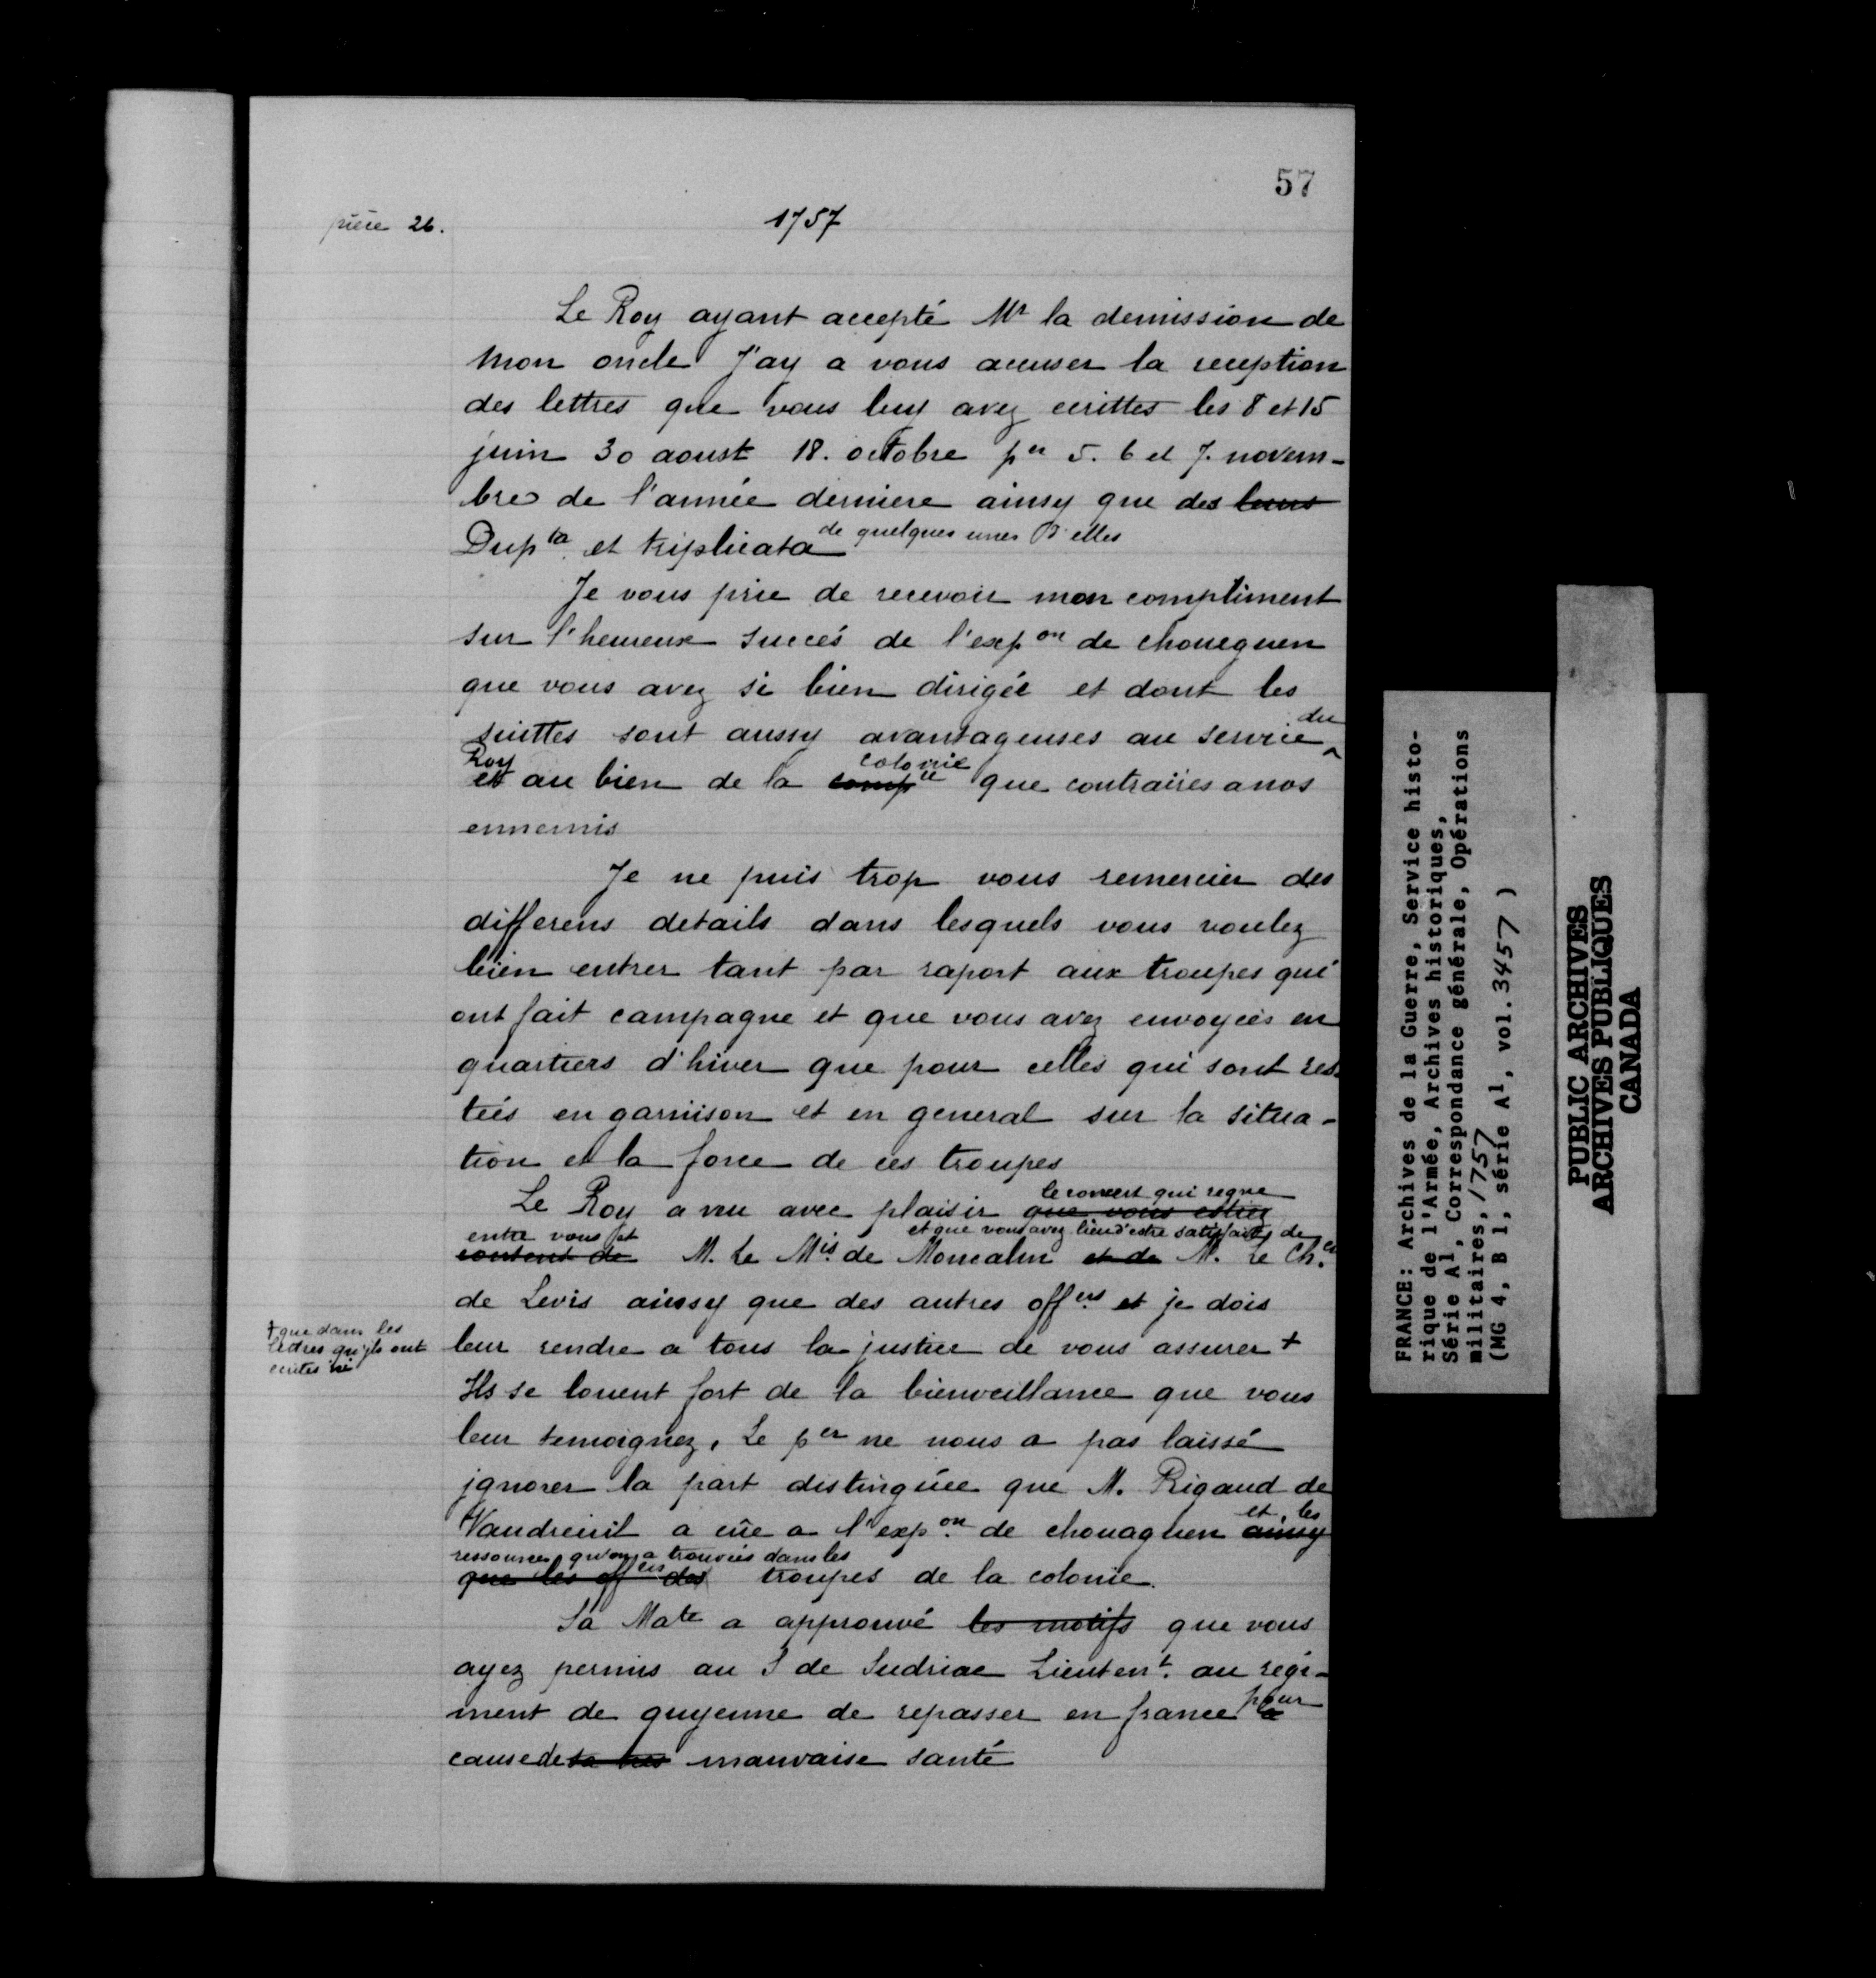 57
pièce 26.
1757
Le Roy ayant accepté Mr la demission de
mon oncle J'ay a vous accuser la reception
des lettres que vous luy avez ecrittes les 8 et 15
juin 30 aoust 18. octobre per 5. 6 et 7. novem-
bre de l'année derniere ainsy que des leurs
Dupta et triplicata de quelques unes d'elles
Je vous prie de recevoir mon compliment
sur l'heureux succés de l'expon de choueguen
que vous avez si bien dirigée et dont les
suittes sont aussy avantageuses au service du
Roy et au bien de la compie colonie que contraires a nos
ennemis
Je ne puis trop vous remercier des
differens details dans lesquels vous voulez
bien entrer tant par raport aux troupes qui
ont fait campagne et que vous avez envoyées en
quartiers d'hiver que pour celles qui sont res-
tées en garnison et en general sur la situa-
tion et la force de ces troupes
Le Roy a veu avec plaisir que vous estiez le concert qui regne
contenT de entre vous et M. Le Mis. de Moncalm et de et que vous avez lieu d'estre satisfaits de M. Le Cher.
de Levis ainssy que des autres offers. et je dois
leur rendre a tous la justice de vous assurer +
+ que dans les
lettres qu'ils ont
ecrites ici
Ils se louent fort de la bienveillance que vous
leur temoignez, Le per ne nous a pas laissé
jgnorer la part distinguée que M. Rigaud de
Vaudreuil a eüe a l'expon. de chouaguen ainsy et les
que les offers des ressources qu'on a trouvées dans les troupes de la colonie.
Sa Mate a approuvé les motifs que vous
ayez permis au S de Sudriac Lieutent. au regi-
ment de guyenne de repasser en france pour
cause de sa tres mauvaise santé
FRANCE: Archives de la Guerre, Service histo-
rique de l'Armée, Archives historiques,
Série A1, Correspondance générale, Opérations
militaires, 1757
(MG 4, B 1, série A1, vol. 3457 )
PUBLIC ARCHIVES
ARCHIVES PUBLIQUES
CANADA